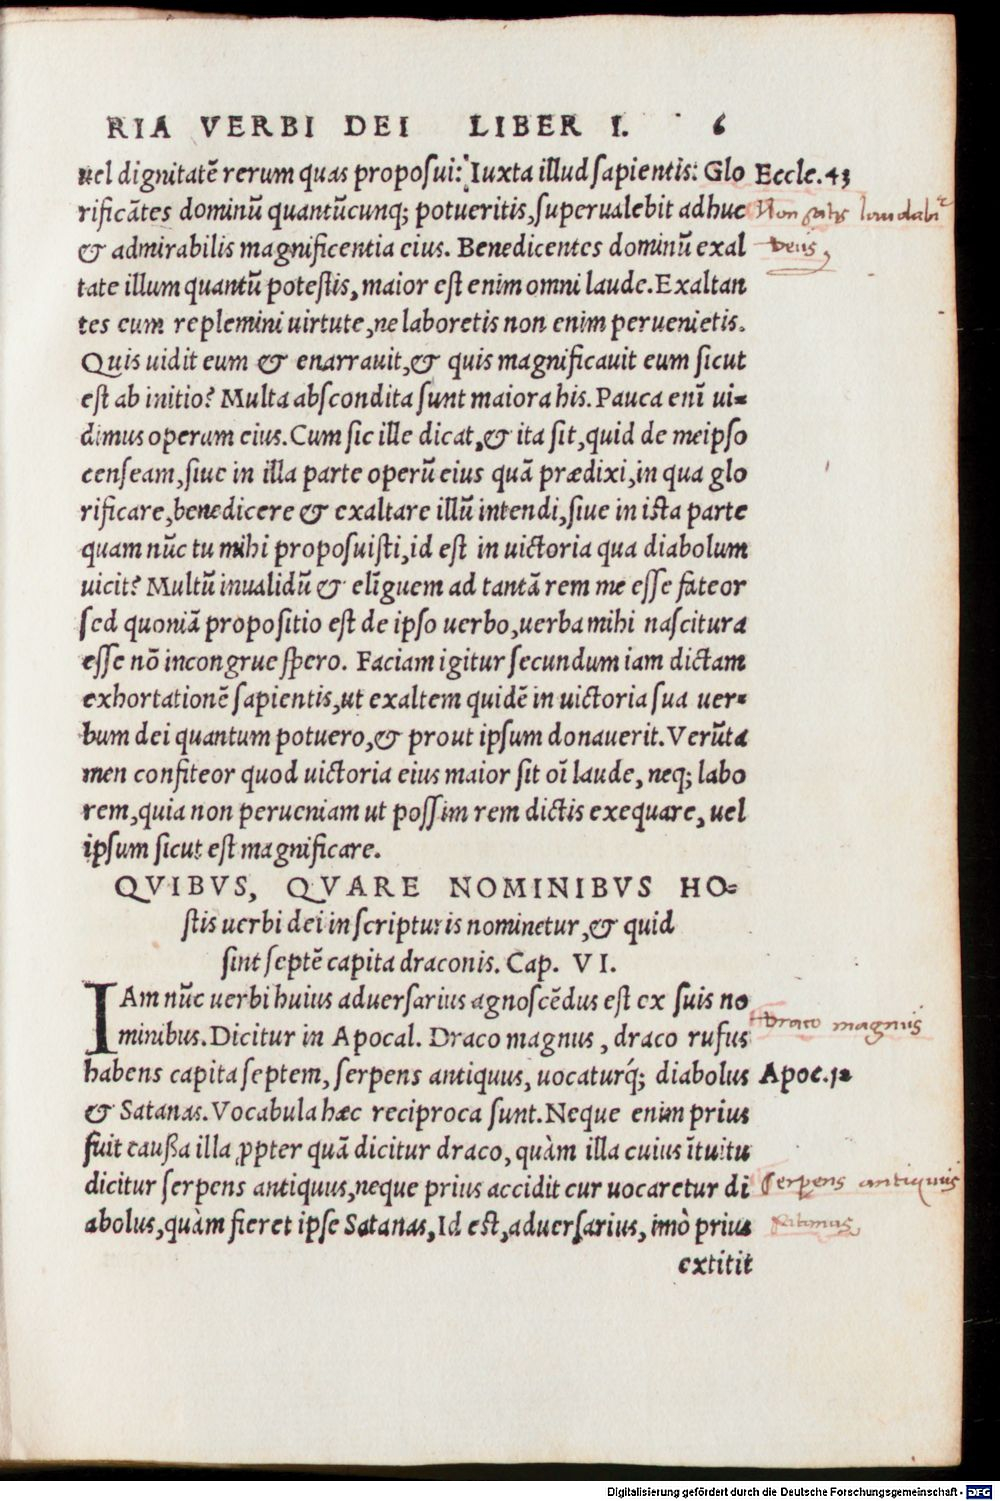 RIA VERBI DEI LIBER I. 6
uel dignitatē rerum quas proposui: Iuxta illud sapientis: Glo Eccle. 43
rificātes dominū quantūcunq; potueritis, superualebit adhuc Non satis laudabi
& admirabilis magnificentia eius. Benedicentes dominū exal deus,
tate illum quantū potestis, maior est enim omni laude. Exaltan
tes eum replemini uirtute, ne laboretis non enim peruenietis.
Quis uidit eum & enarrauit, & quis magnificauit eum sicut
est ab initio? Multa abscondita sunt maiora his. Pauca enī ui-
dimus operum eius. Cum sic ille dicat, & ita sit, quid de meipso
censeam, siue in illa parte operū eius quā prædixi, in qua glo
rificare, benedicere & exaltare illū intendi, siue in ista parte
quam nūc tu mihi proposuisti, id est in uictoria qua diabolum
uicit? Multū inualidū & elīguem ad tantā rem me esse fateor
sed quoniā propositio est de ipso uerbo, uerba mihi nascitura
esse nō incongrue spero. Faciam igitur secundum iam dictam
exhortationē sapientis, ut exaltem quidē in uictoria sua uer-
bum dei quantum potuero, & prout ipsum donauerit. Verūta
men confiteor quod uictoria eius maior sit oī laude, neq; labo
rem, quia non perueniam ut possim rem dictis exequare, uel
ipsum sicut est magnificare.
QVIBVS, QVARE NOMINIBVS HO=
stis uerbi dei in scripturis nominetur, & quid
sint septē capita draconis. Cap. VI.
IAm nūc uerbi huius aduersarius agnoscēdus est ex suis no
minibus. Dicitur in Apocal. Draco magnus, draco rufus Draco magnus
habens capita septem, serpens antiquus, uocaturq́; diabolus Apoc. 12
& Satanas. Vocabula hæc reciproca sunt. Neque enim prius
fuit caußa illa ꝓpter quā dicitur draco, quàm illa cuius ītuitu
dicitur serpens antiquus, neque prius accidit cur uocaretur di Serpens antiquus
abolus, quàm fieret ipse Satanas, Id est, aduersarius, imò prius
extitit
Digitalisierung gefördert durch die Deutsche Forschungsgemeinschaft - DFG